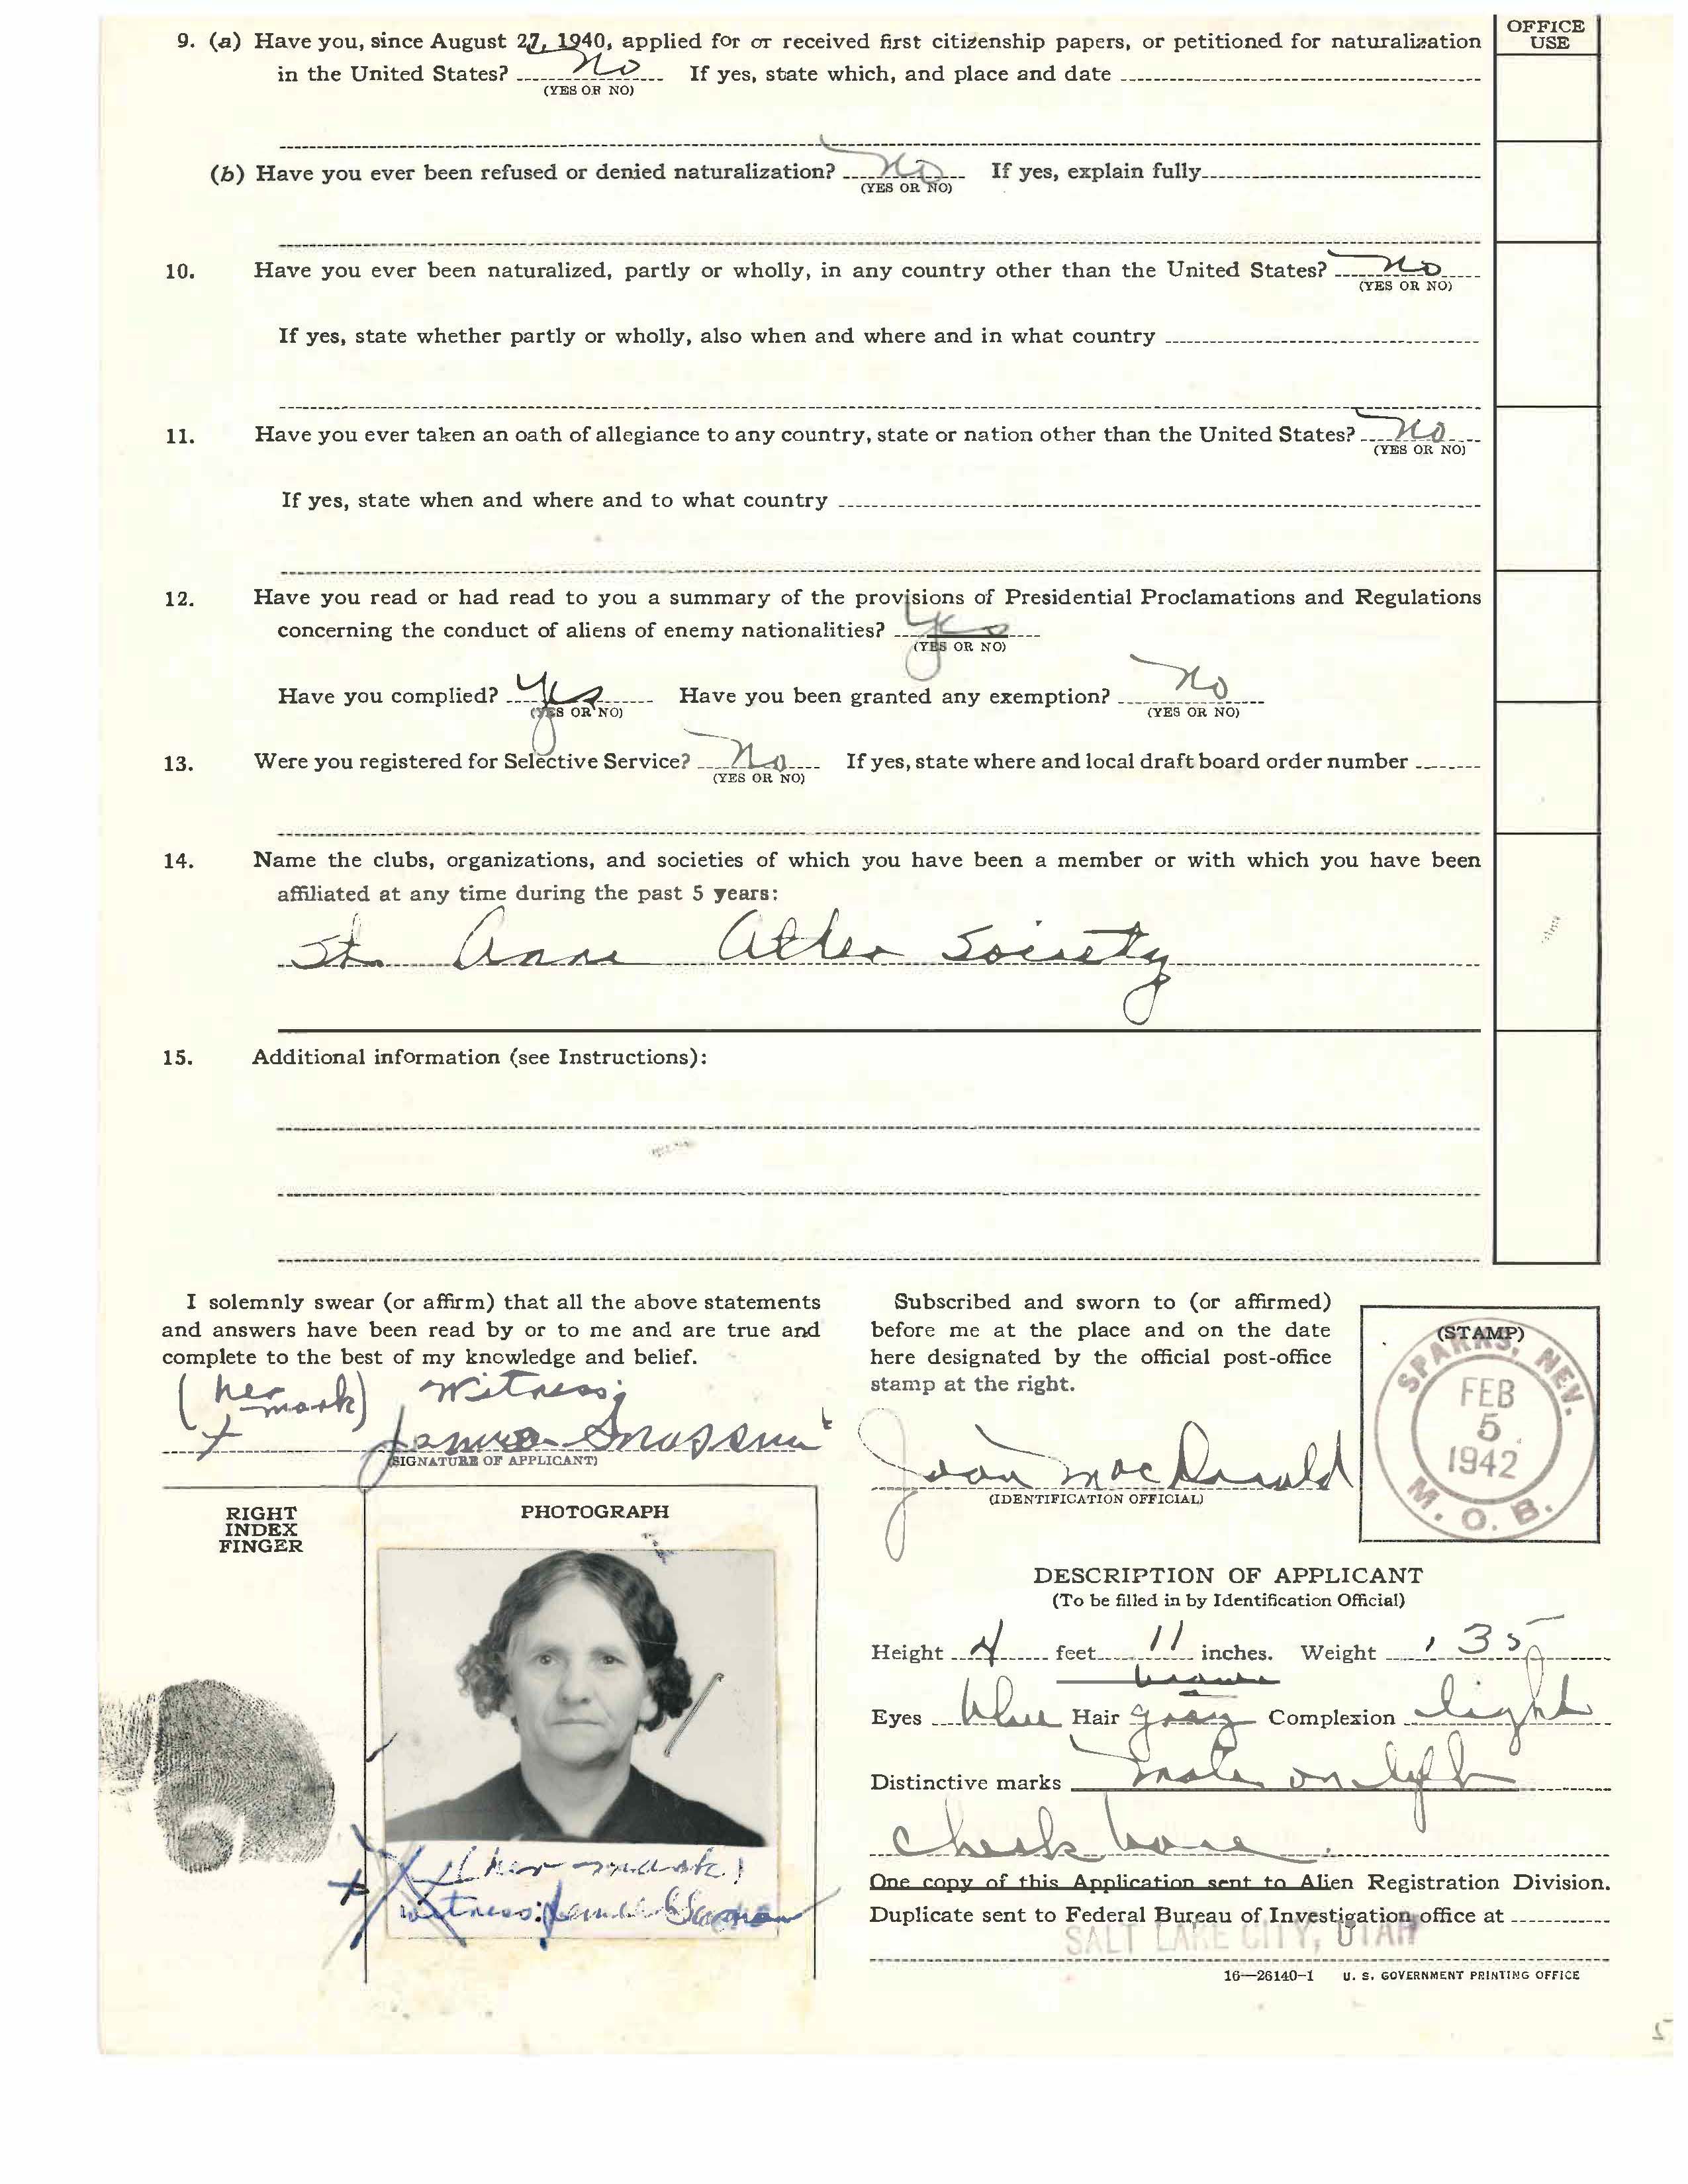 OFFICE
USE
9. (a) Have you, since August 27, 1940, applied for or received first citizenship papers, or petitioned for naturalization
in the United States? No If yes, state which, and place and date
(YES OR NO)
(b) Have you ever been refused or denied naturalization? No If yes, explain fully
(YES OR NO)
10. Have you ever been naturalized, partly or wholly, in any country other than the United States? No
(YES OR NO)
If yes, state whether partly or wholly, also when and where and in what country
11. Have you ever taken an oath of allegiance to any country, state or nation other than the United States? No
(YES OR NO)
If yes, state when and where and to what country
12. Have you read or had read to you a summary of the provisions of Presidential Proclamations and Regulations
concerning the conduct of aliens of enemy nationalities? Yes
(YES OR NO)
Have you complied? Yes Have you been granted any exemption? No
(YES OR NO) (YES OR NO)
13. Were you registered for Selective Service? No If yes, state where and local draft board order number
(YES OR NO)
14. Name the clubs, organizations, and societies of which you have been a member or with which you have been
affiliated at any time during the past 5 years:
St. Anne Alter Society
15. Additional information (see Instructions):
I solemnly swear (or affirm) that all the above statements
and answers have been read by or to me and are true and
complete to the best of my knowledge and belief.
(her mark) Witness:
+
(SIGNATURE OF APPLICANT)
Subscribed and sworn to (or affirmed)
before me at the place and on the date
here designated by the official post-office
stamp at the right.
Joan MacDonald
(IDENTIFICATION OFFICIAL)
(STAMP)
SPARKS, NEV.
FEB
5
1942
M. O. B.
RIGHT
INDEX
FINGER
PHOTOGRAPH
(her mark)
witness:
DESCRIPTION OF APPLICANT
(To be filled in by Identification Official)
Height 4 feet 11 inches. Weight 135
brown
Eyes blue Hair gray Complexion light
Distinctive marks mole on left
cheek bone
One copy of this Application sent to Alien Registration Division.
Duplicate sent to Federal Bureau of Investigation office at
SALT LAKE CITY, UTAH
16—26140-1 U. S. GOVERNMENT PRINTING OFFICE